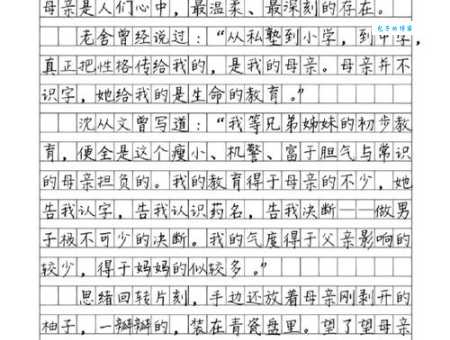 母亲是人们心中，最温柔、最深刻的存在。
老舍曾经说过：“从私塾到小学，到中学，
真正把性格传给我的，是我的母亲。母亲并不
识字，她给我的是生命的教育。”
沈从文曾写道：“我等兄弟姊妹的初步教
育，便全是这个瘦小、机警、富于胆气与常识
的母亲担负的。我的教育得于母亲的不少，她
告我认字，告我认识药名，告我决断——做男
子极不可少的决断。我的气度得于父亲影响的
较少，得于妈妈的似较多。”
思绪回转片刻，手边还放着母亲刚剥开的
柚子，一瓣瓣的，装在青瓷盘里。望了望母亲